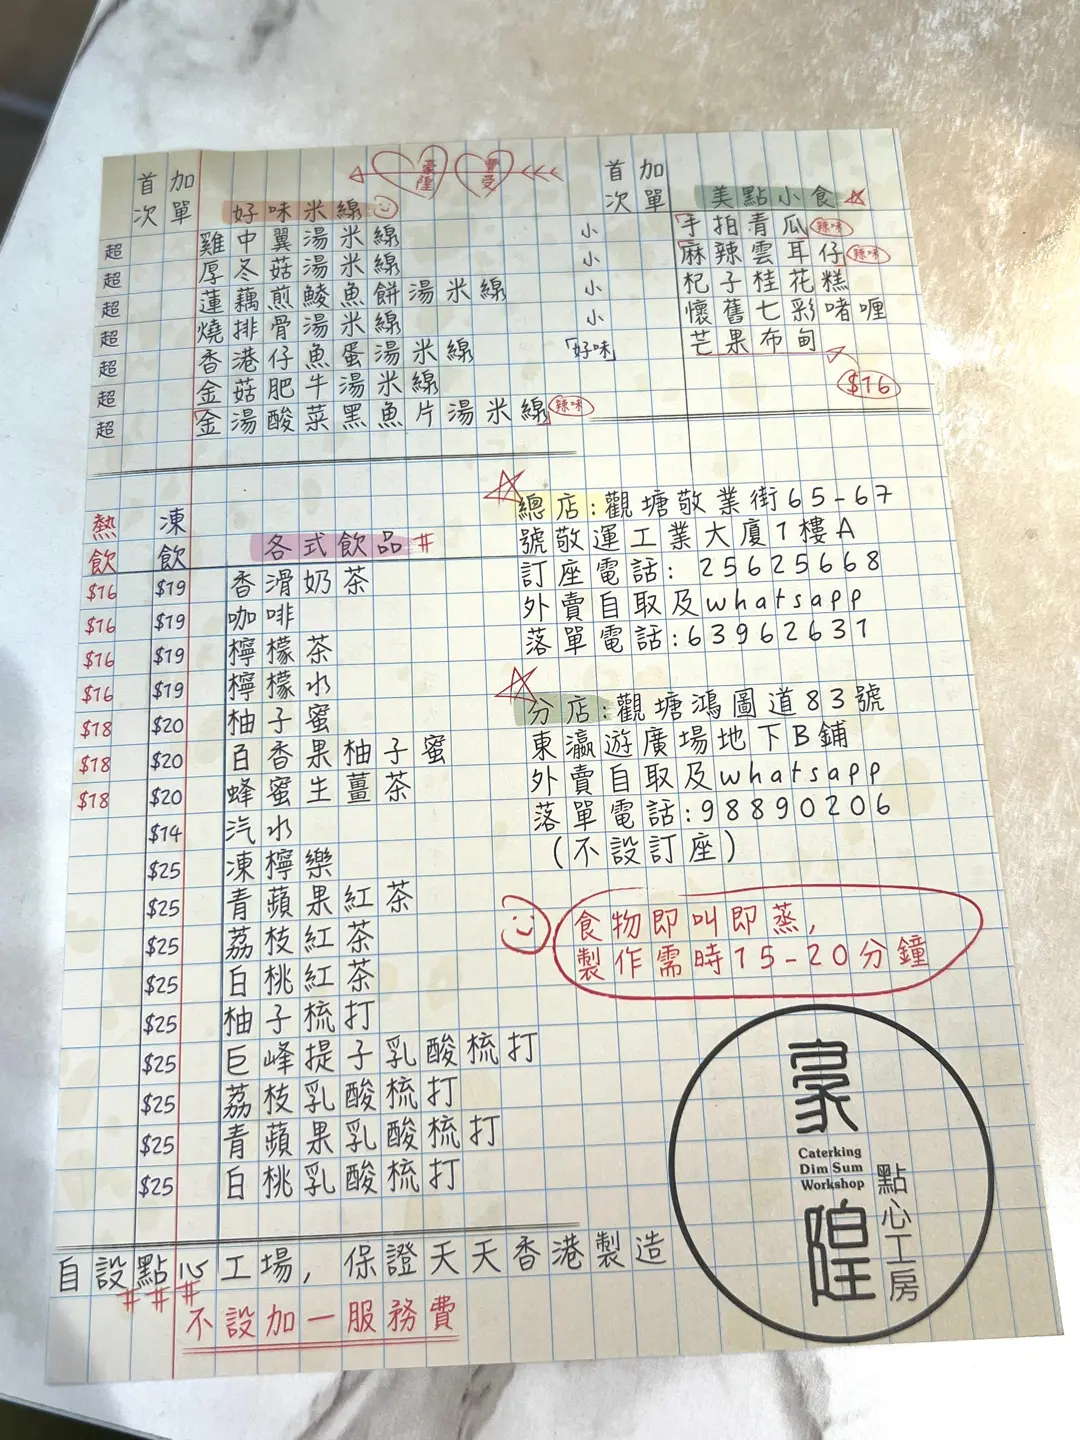 豪隍
豐受
首次
加單
好味米線
超 雞中翼湯米線
超 厚冬菇湯米線
超 蓮藕煎鯪魚餅湯米線
超 燒排骨湯米線
超 香港仔魚蛋湯米線
超 金菇肥牛湯米線
超 「金湯酸菜黑魚片湯米線」 辣味
首次
加單
美點小食
小 手拍青瓜 辣味
小 麻辣雲耳仔 辣味
小 杞子桂花糕
小 懷舊七彩啫喱
「好味」 芒果布甸
$16
熱飲
凍飲
各式飲品 #
$16 $19 香滑奶茶
$16 $19 咖啡
$16 $19 檸檬茶
$16 $19 檸檬水
$18 $20 柚子蜜
$18 $20 百香果柚子蜜
$18 $20 蜂蜜生薑茶
$14 汽水
$25 凍檸樂
$25 青蘋果紅茶
$25 荔枝紅茶
$25 白桃紅茶
$25 柚子梳打
$25 巨峰提子乳酸梳打
$25 荔枝乳酸梳打
$25 青蘋果乳酸梳打
$25 白桃乳酸梳打
總店:觀塘敬業街65-67
號敬運工業大廈1樓A
訂座電話: 25625668
外賣自取及whatsapp
落單電話:63962631
分店:觀塘鴻圖道83號
東瀛遊廣場地下B鋪
外賣自取及whatsapp
落單電話:98890206
(不設訂座)
食物即叫即蒸,
製作需時15-20分鐘
豪隍
Caterking
Dim Sum
Workshop
點心工房
自設點心工場, 保證天天香港製造
###
不設加一服務費